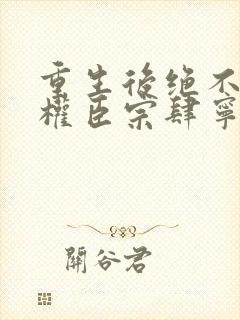 重生後绝不
權臣宗肆寧
關谷君